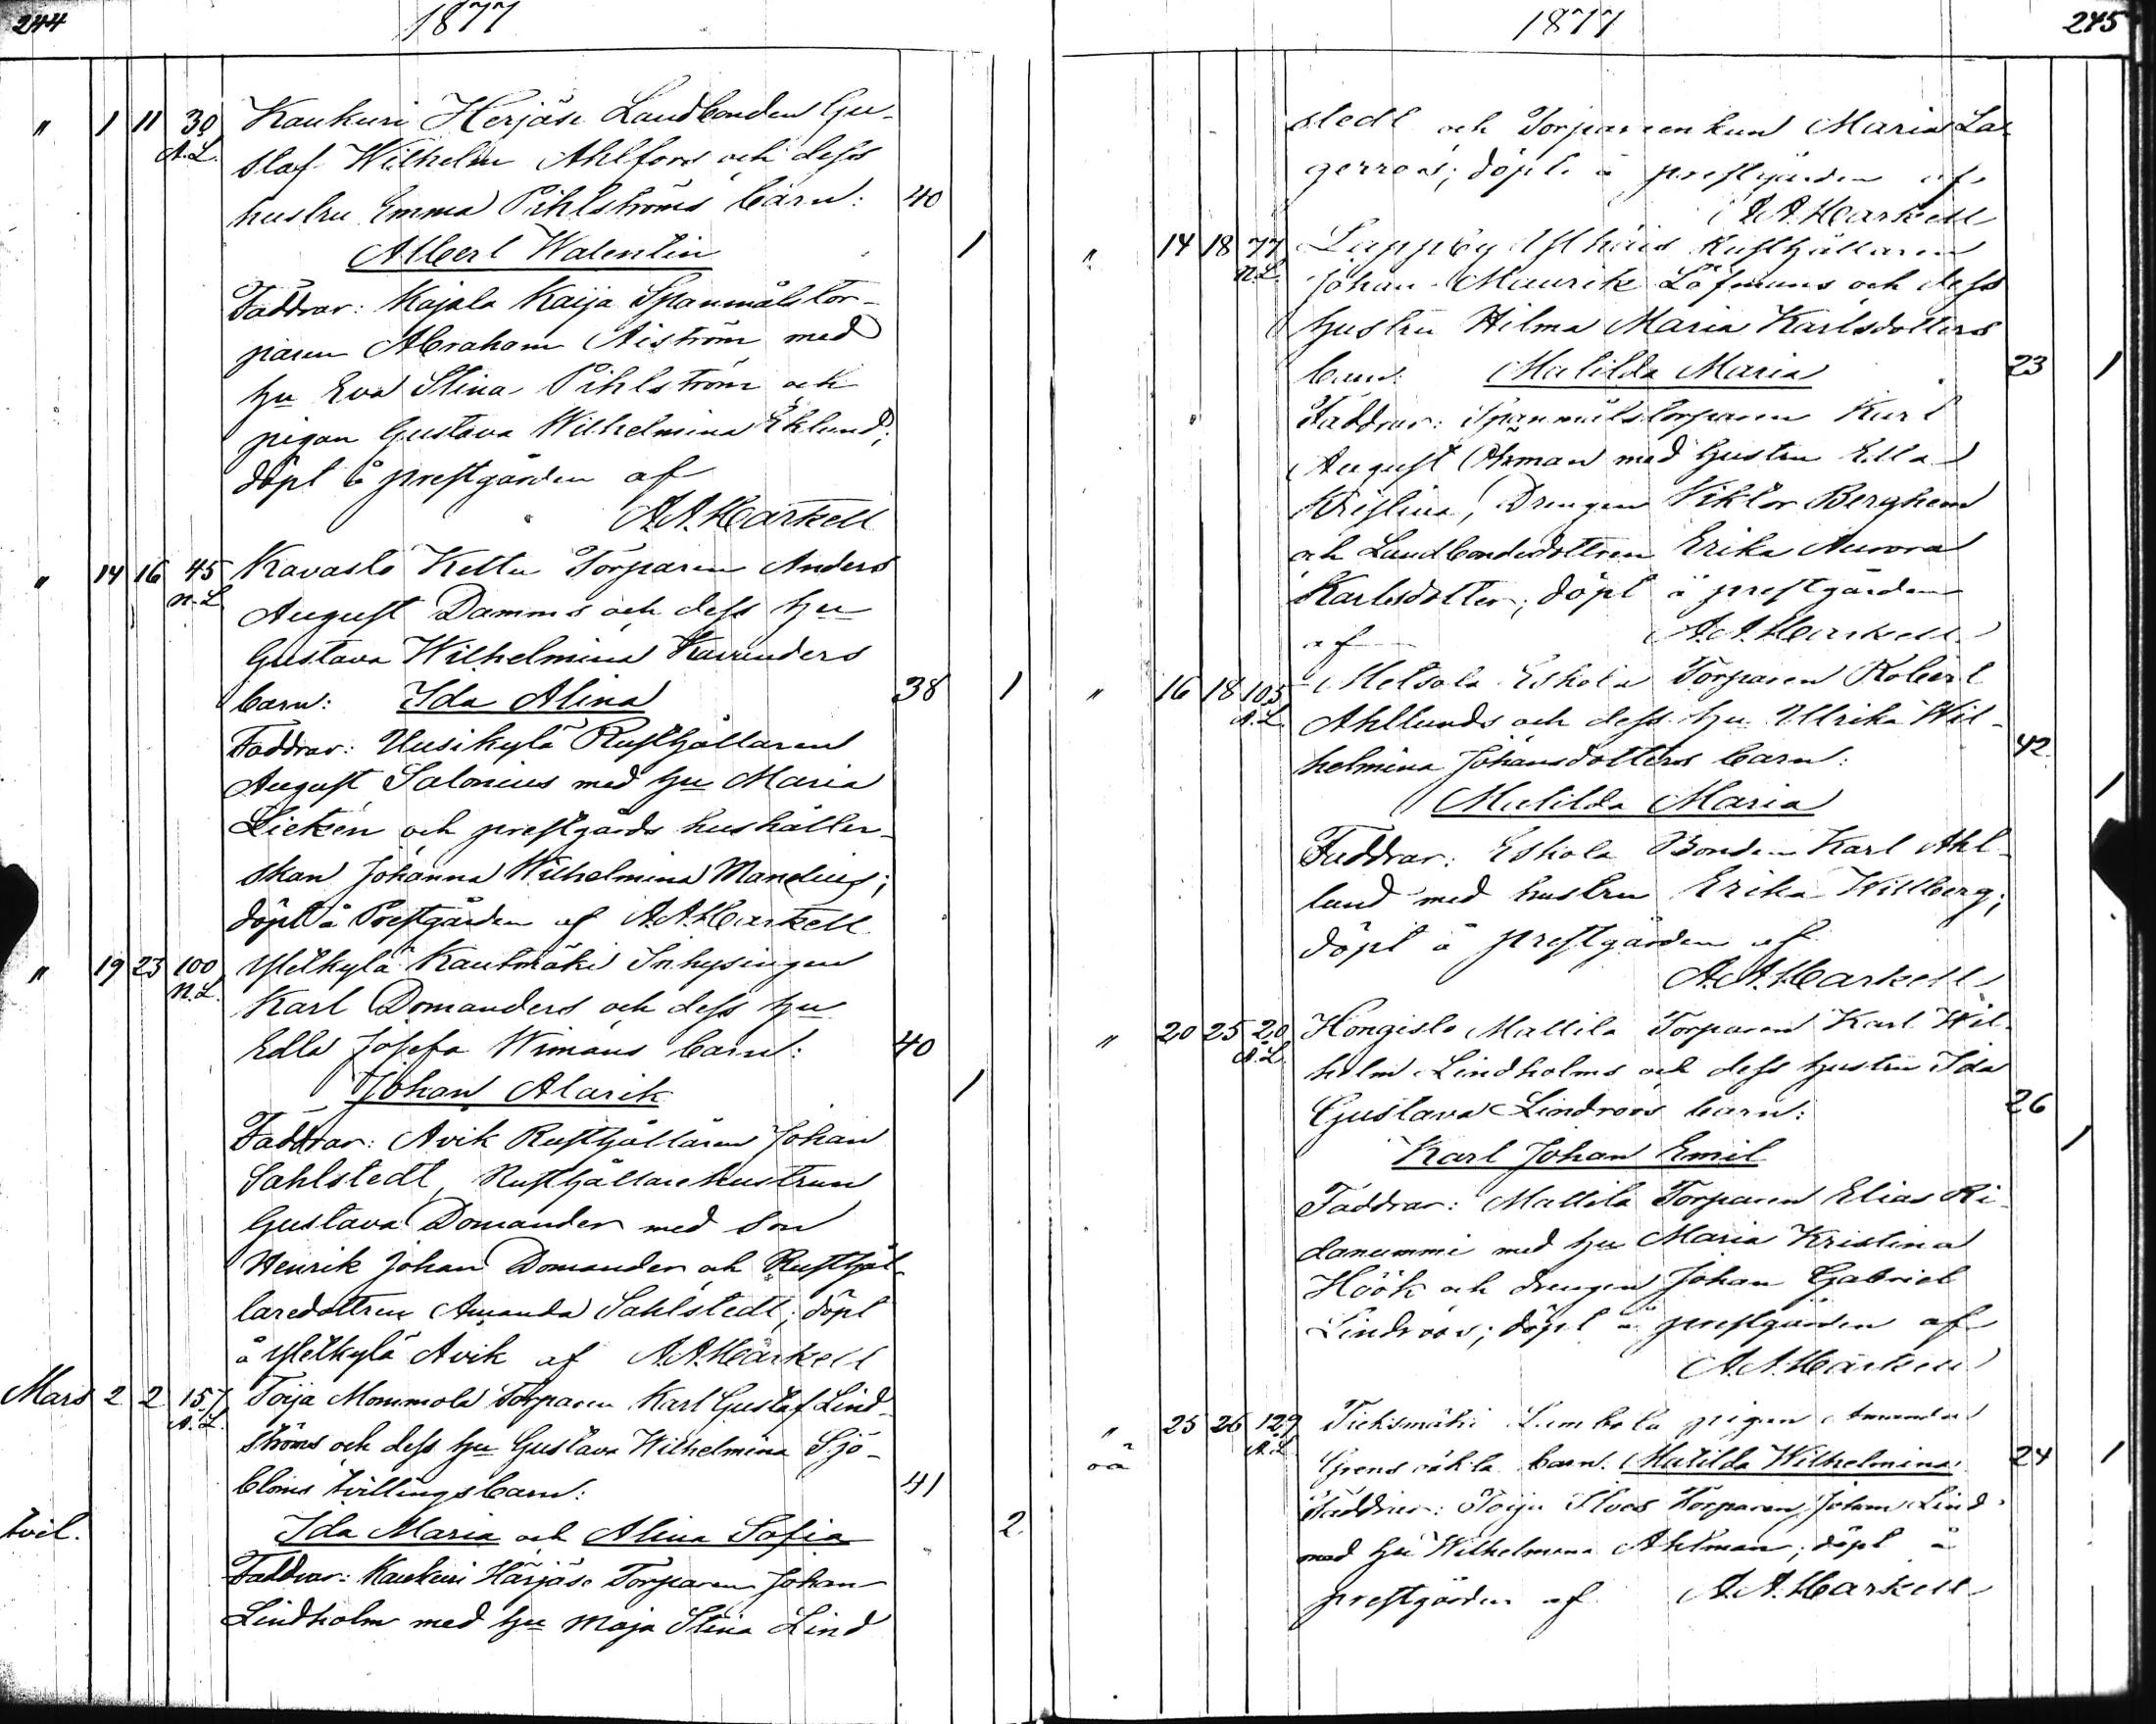 244 1877
" 1 11 30 Kaukuri Herjäse Landbonden Gu-
A.L. staf Wilhelm Ahlfors och dess
hustru Emma Pihlströms barn: 40
Albert Walentin 1
Faddrar: Kajala Kaija Spanmålstor-
paren Abraham Aiström med
hu Eva Stina Pihlström och
pigan Gustava Wilhelmina Eklund;
döpt å prestgården af
A.A. Markell
" 14 16 45 Kavasto Kettu Torparen Anders
N.L. August Damms och dess hu
Gustava Wilhelmina Kavanders
barn: Ida Alina 38 1
Faddrar: Uusikylä Rusthållaren
August Salonius med hu Maria
Lietzén och prestgårds hushåller-
skan Johanna Wilhelmina Mandius;
döpt å Prestgården af A.A. Markell
" 19 23 100 Ylelkylä Kautmäki Inhysingen
N.L. Karl Domanders och dess hu
Edla Josefa Wimans barn: 40
Johan Alarik 1
Faddrar: Avik Rusthållaren Johan
Sahlstedt, Rusthållarehustrun
Gustava Domander med son
Henrik Johan Domander och Rusthål-
laredottren Amanda Sahlstedt; döpt
å Ylelkylä Avik af A.A. Markell
Mars 2 2 157 Toija Mommola Torparen Karl Gustaf Lind-
A.L. ströms och dess hu Gustava Wilhelmina Sjö-
bloms tvillingsbarn: 41
tvil. Ida Maria och Alina Sofia 2
Faddrar: Kaukuri Härjäse Torparen Johan
Lindholm med hu Maja Stina Lind
1877 245
stedt och Torparenkun Maria La-
gerroos; döpt å prestgården af
A.A. Markell
" 14 18 77 Lappby Rusthållaren
N.L. Johan Maurik Löfmans och dess
hustru Hilma Maria Karlsdotters
barn: Matilda Maria 23 1
Faddrar: Spanmålstorparen Karl
August Öhman med hustru Edla
Kristina, Drengen Viktor Berghem
och Landbondedottren Erika Aurora
Karlsdotter; döpt å prestgården
af A.A. Markell
" 16 18 105 Metsola Eskola Torparen Robert
A.L. Ahllunds och dess hu Ullrika Wil-
helmina Johansdotters barn: 42
Matilda Maria 1
Faddrar: Eskola Bonden Karl Ahl-
lund med hustru Erika Willberg;
döpt å prestgården af
A.A. Markell
" 20 25 20 Hongisto Mattila Torparen Karl Wil-
A.L. helm Lindholms och dess hustru Ida
Gustava Lindroos barn: 26
Karl Johan Emil 1
Faddrar: Mattila Torparen Elias Ri-
danummi med hu Maria Kristina
Höök och drengen Johan Gabriel
Lindroos; döpt å prestgården af
A.A. Markell
" 25 26 129 Tiksmäki Lumbola pigan Amanda
oä A.L. barn. Matilda Wilhelmina 24 1
Faddrar: Toija Torparen Johan Lind
med hu Wilhelmina Ahlman; döpt å
prestgården af A.A. Markell